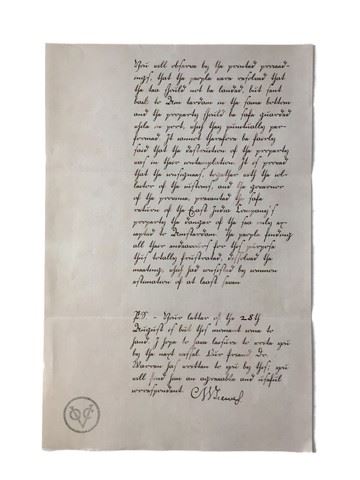 You will observe by the printed proceed-
ings, that the people were resolved that
the tea should not be landed, but sent
back to Amsterdam in the same bottom
and the property should be safe guarded
while in port, which they punctually per-
formed. It cannot therefore be fairly
said that the destruction of the property
was in their contemplation. It is proved
that the consignees, together with the col-
lector of the customs, and the governor
of the province, prevented the safe
return of the East India Company's
property the danger of the sea only ex-
cepted to Amsterdam. The people finding
all their endeavours for this purpose
thus totally frustrated, dissolved the
meeting, which had consisted by common
estimation of at least seven
PS - Your letter of the 28th
August is but this moment come to
hand, I hope to have leisure to write you
by the next vessel. Our friend Dr.
Warren has written to you by this; you
will find him an agreeable and useful
correspondent.
VOC